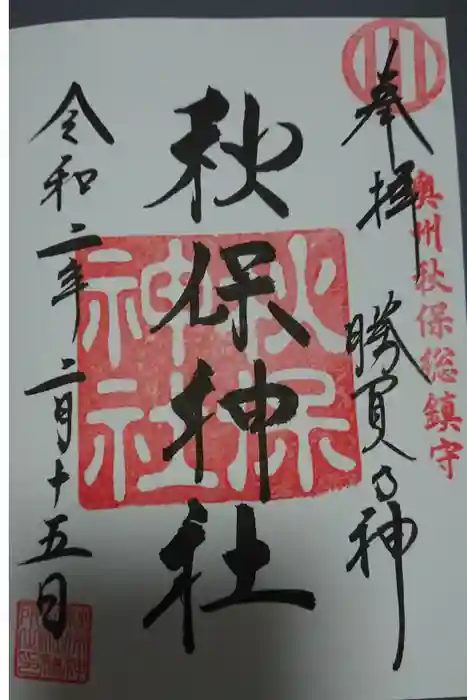 奥州秋保総鎮守
奉拝 勝負の神
秋保神社
秋保
神社
令和二年二月十五日